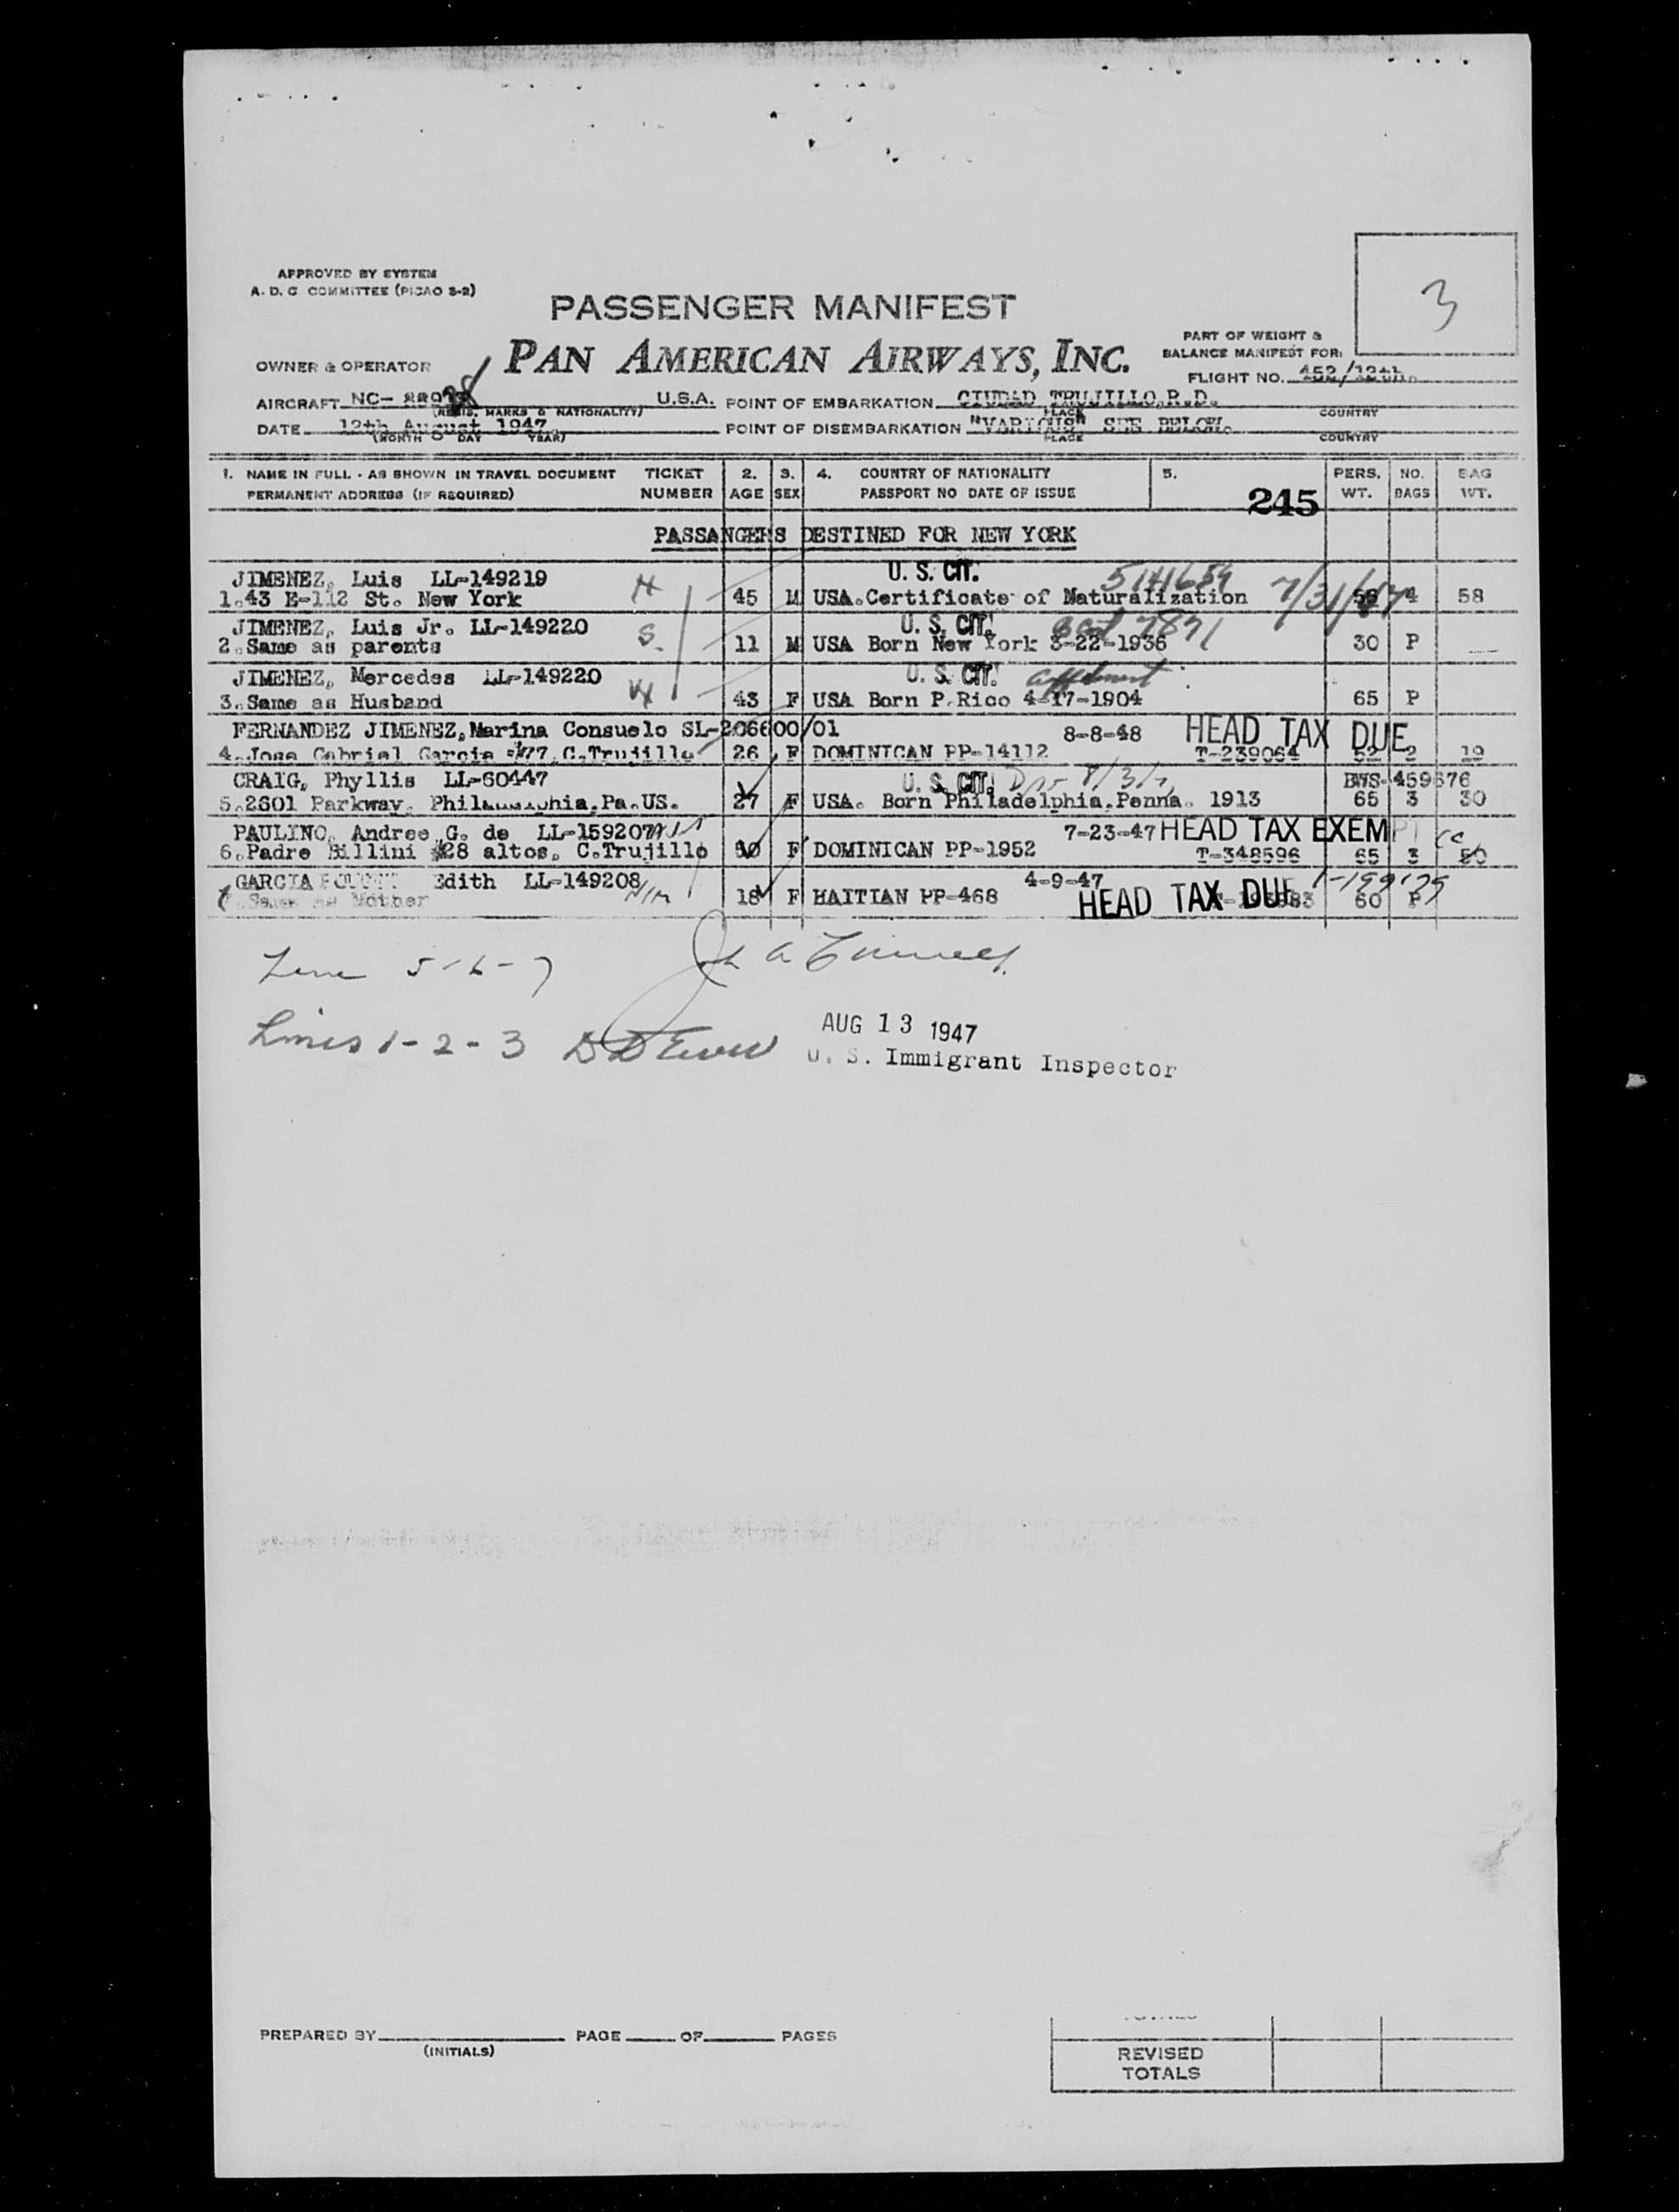 3
APPROVED BY SYSTEM
A. D. C. COMMITTEE (PICAO 3-2)
PASSENGER MANIFEST
PART OF WEIGHT &
BALANCE MANIFEST FOR:
OWNER & OPERATOR
PAN AMERICAN AIRWAYS, INC.
FLIGHT NO. 452/12th.
AIRCRAFT NC- U.S.A. POINT OF EMBARKATION CIUDAD TRUJILLO,R.D.
(REGIS. MARKS & NATIONALITY) PLACE COUNTRY
DATE 12th August 1947 POINT OF DISEMBARKATION "VARIOUS" SEE BELOW.
(MONTH DAY YEAR) PLACE COUNTRY
1. NAME IN FULL - AS SHOWN IN TRAVEL DOCUMENT TICKET 2. 3. 4. COUNTRY OF NATIONALITY 5. PERS. NO. BAG
PERMANENT ADDRESS (IF REQUIRED) NUMBER AGE SEX PASSPORT NO DATE OF ISSUE 245 WT. BAGS WT.
PASSANGERS DESTINED FOR NEW YORK
JIMENEZ, Luis LL-149219 H U. S. CIT. 5141659
1.43 E-112 St. New York 45 M USA.Certificate of Naturalization 7/31/47 4 58
JIMENEZ, Luis Jr. LL-149220 S. U. S. CIT. 7871
2.Same as parents 11 M USA Born New York 3-22-1936 30 P
JIMENEZ, Mercedes LL-149220 W U. S. CIT.
3.Same as Husband 43 F USA Born P.Rico 4-17-1904 65 P
FERNANDEZ JIMENEZ,Marina Consuelo SL-206600/01 8-8-48 HEAD TAX DUE
4.Jose Gabriel Garcia #77,C.Trujillo 26 F DOMINICAN PP-14112 T-239064 52 2 19
CRAIG, Phyllis LL-60447 U. S. CIT. BWS-459676
5.2601 Parkway, Philadelphia,Pa.US. 27 F USA. Born Philadelphia,Penna. 1913 65 3 30
PAULINO, Andree G. de LL-159207 7-23-47 HEAD TAX EXEMPT
6.Padre Billini #28 altos, C.Trujillo F DOMINICAN PP-1952 T-348596 65 3
GARCIA Edith LL-149208 4-9-47
Same as Mother 18 F HAITIAN PP-468 HEAD TAX DUE 60 P
Line 5-6-7
Lines 1-2-3
AUG 13 1947
U. S. Immigrant Inspector
PREPARED BY PAGE OF PAGES
(INITIALS)
REVISED
TOTALS